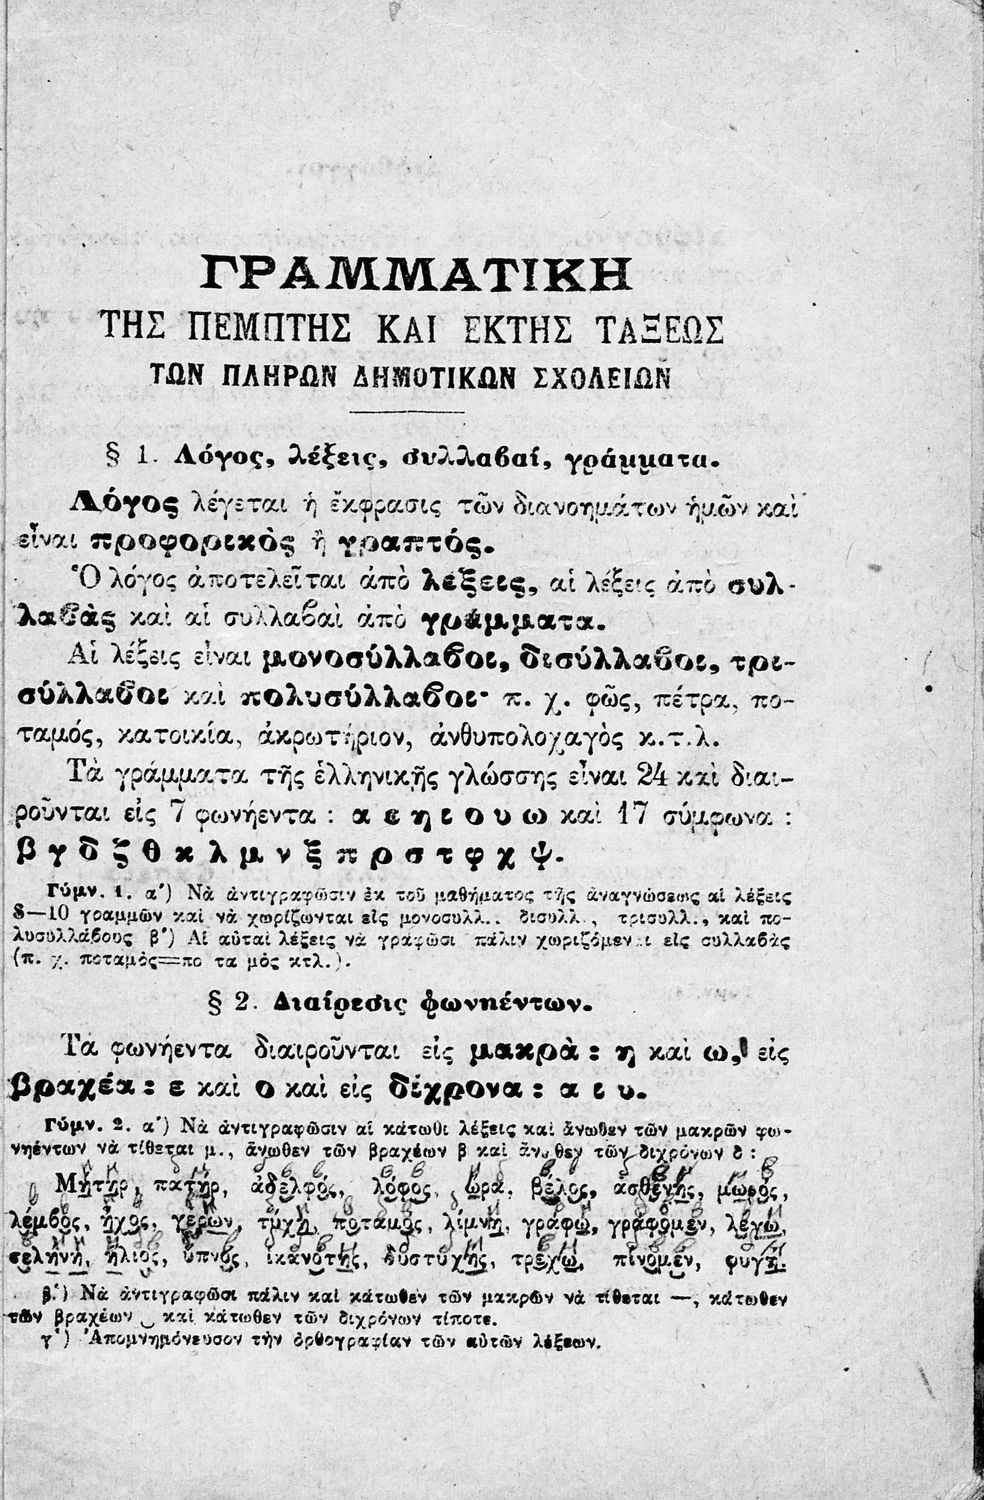 ΓΡΑΜΜΑΤΙΚΗ
ΤΗΣ ΠΕΜΠΤΗΣ ΚΑΙ ΕΚΤΗΣ ΤΑΞΕΩΣ
ΤΩΝ ΠΛΗΡΩΝ ΔΗΜΟΤΙΚΩΝ ΣΧΟΛΕΙΩΝ
§ 1. Λόγος, λέξεις, συλλαβαί, γράμματα.
Λόγος λέγεται ἡ ἔκφρασις τῶν διανοημάτων ἡμῶν καὶ
εἶναι προφορικὸς ἢ γραπτός.
Ὁ λόγος ἀποτελεῖται ἀπὸ λέξεις, αἱ λέξεις ἀπὸ συλ-
λαβὰς καὶ αἱ συλλαβαὶ ἀπὸ γράμματα.
Αἱ λέξεις εἶναι μονοσύλλαβοι, δισύλλαβοι, τρι-
σύλλαβοι καὶ πολυσύλλαβοι· π. χ. φῶς, πέτρα, πο-
ταμός, κατοικία, ἀκρωτήριον, ἀνθυπολοχαγὸς κ.τ.λ.
Τὰ γράμματα τῆς ἑλληνικῆς γλώσσης εἶναι 24 καὶ διαι-
ροῦνται εἰς 7 φωνήεντα : α ε η ι ο υ ω καὶ 17 σύμφωνα :
β γ δ ζ θ κ λ μ ν ξ π ρ σ τ φ χ ψ.
Γύμν. 1. α′) Νὰ ἀντιγραφῶσιν ἐκ τοῦ μαθήματος τῆς ἀναγνώσεως αἱ λέξεις
8—10 γραμμῶν καὶ νὰ χωρίζωνται εἰς μονοσυλλ.. δισυλλ., τρισυλλ., καὶ πο-
λυσυλλάβους β′) Αἱ αὐταὶ λέξεις νὰ γράφωσι πάλιν χωριζόμεναι εἰς συλλαβὰς
(π. χ. ποταμός=πο τα μός κτλ.).
§ 2. Διαίρεσις φωνηέντων.
Τὰ φωνήεντα διαιροῦνται εἰς μακρὰ : η καὶ ω, εἰς
βραχέα : ε καὶ ο καὶ εἰς δίχρονα : α ι υ.
Γύμν. 2. α′) Νὰ ἀντιγραφῶσιν αἱ κάτωθι λέξεις καὶ ἄνωθεν τῶν μακρῶν φω-
νηέντων νὰ τίθεται μ., ἄνωθεν τῶν βραχέων β καὶ ἄνωθεν τῶν διχρόνων δ :
Μήτηρ, πατήρ, ἀδελφός, λόφος, ὥρα, βέλος, ἀσθενής, μωρός,
λέμβος, ἦχος, γέρων, τύχη, ποταμός, λίμνη, γράφω, γράφομεν, λέγω,
σελήνη, ἥλιος, ὕπνος, ἱκανότης, δυστυχής, τρέχω, πίνομεν, φυγή.
β′) Νὰ ἀντιγραφῶσι πάλιν καὶ κάτωθεν τῶν μακρῶν νὰ τίθεται —, κάτωθεν
τῶν βραχέων ◡ καὶ κάτωθεν τῶν διχρόνων τίποτε.
γ′) Ἀπομνημόνευσον τὴν ὀρθογραφίαν τῶν αὐτῶν λέξεων.